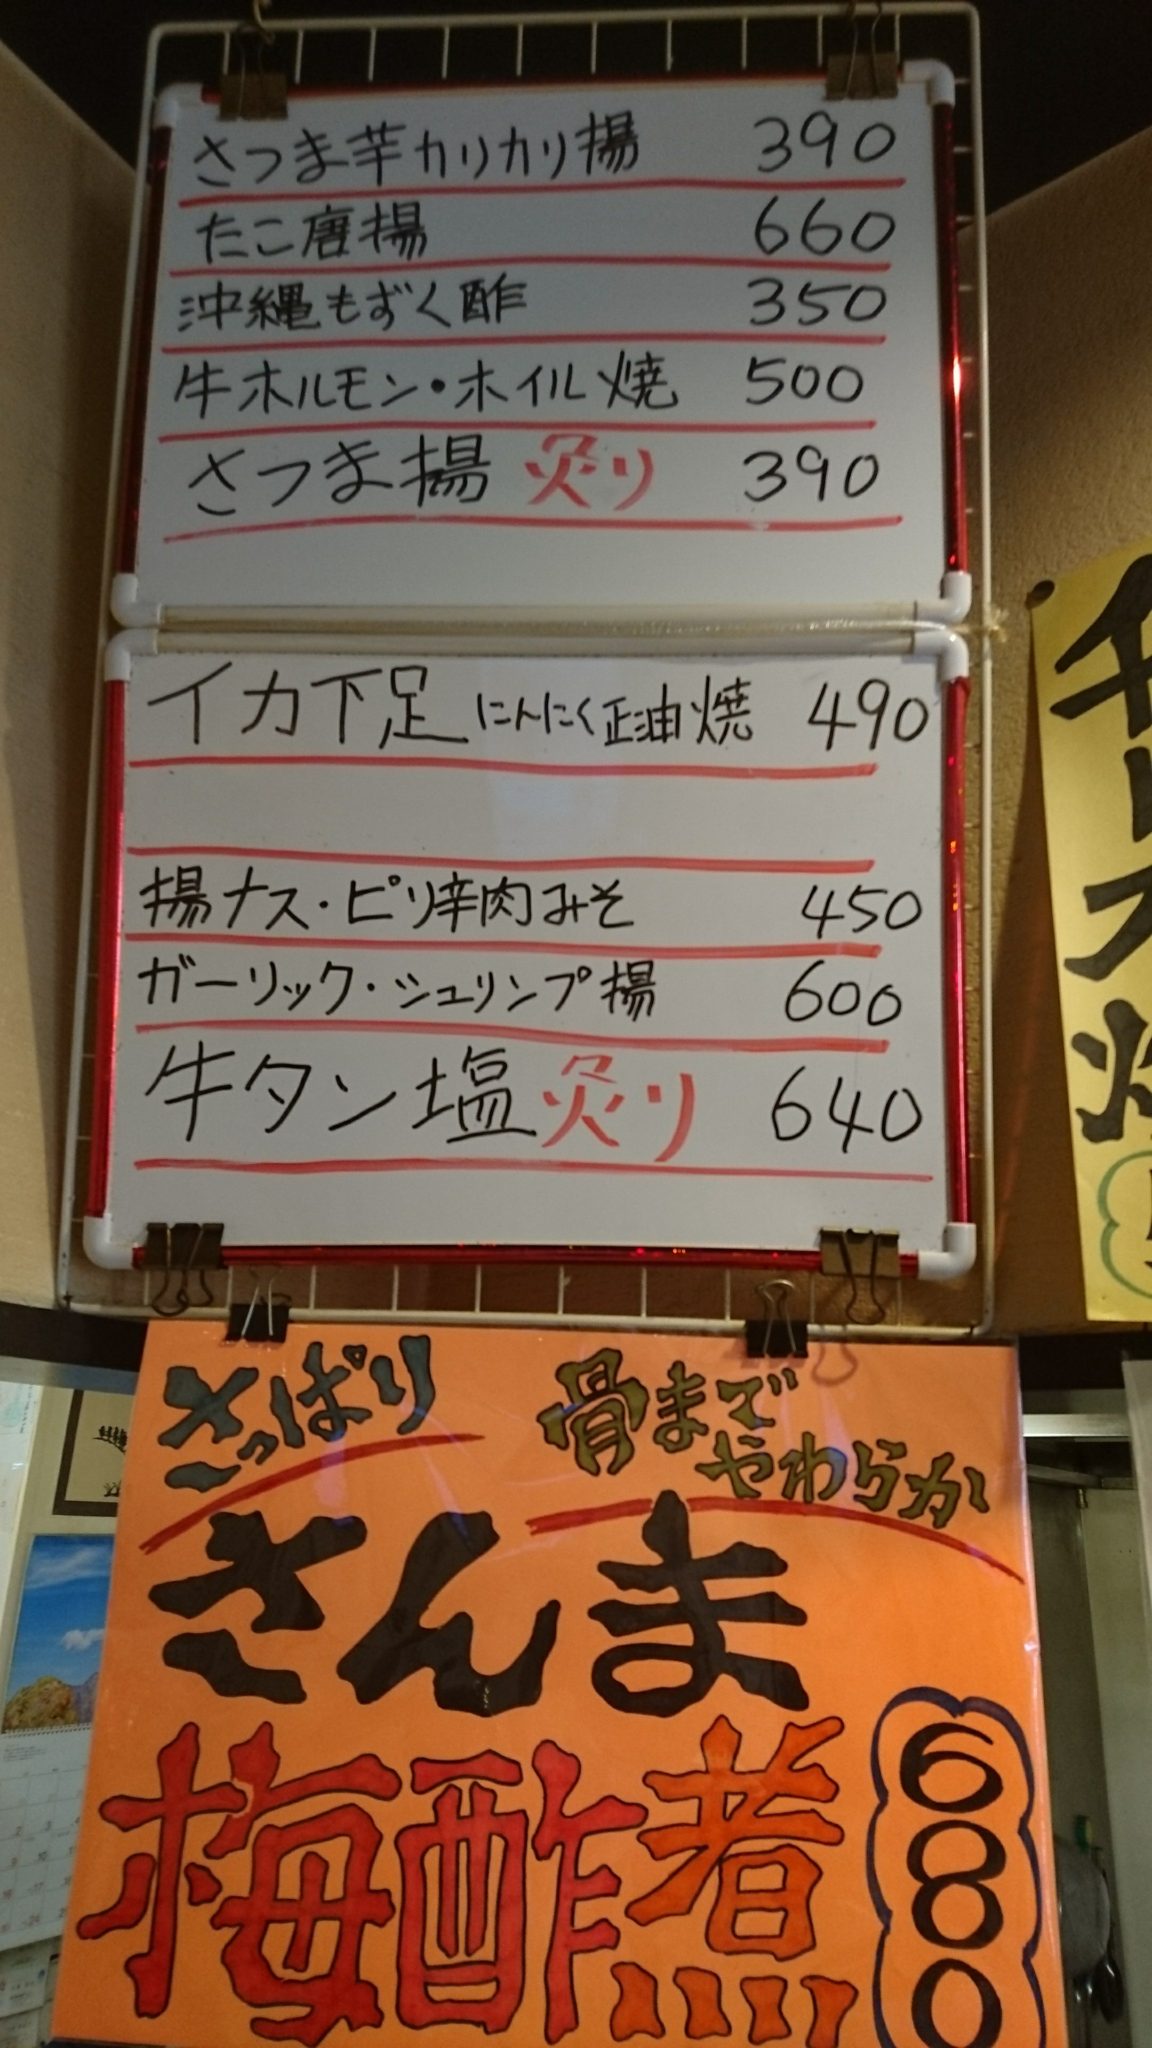 さつま芋カリカリ揚 390
たこ唐揚 660
沖縄もずく酢 350
牛ホルモン・ホイル焼 500
さつま揚 炙り 390
イカ下足 にんにく正油焼 490
揚ナス・ピリ辛肉みそ 450
ガーリック・シュリンプ揚 600
牛タン塩 炙り 640
さっぱり
骨まで
やわらか
さんま
梅酢煮
680